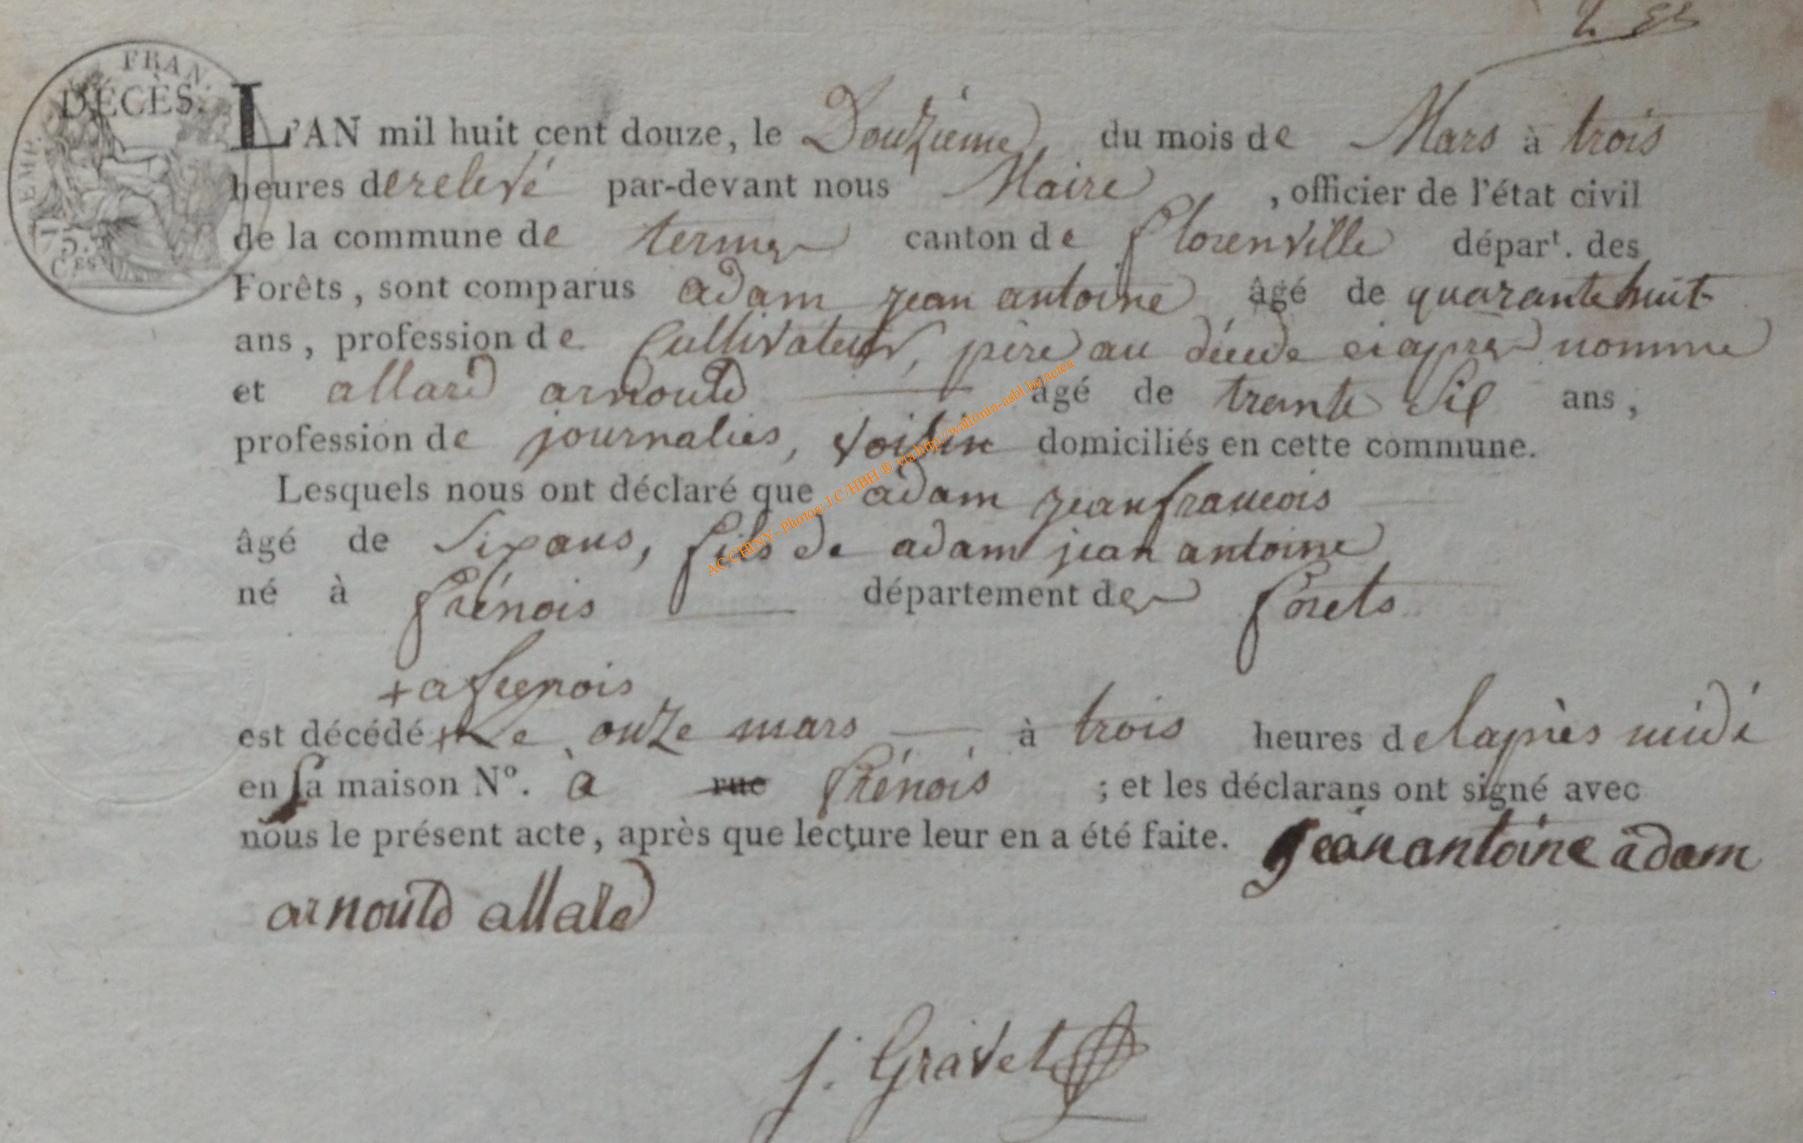 FRAN
DÉCÈS.
EMP.
L'AN mil huit cent douze, le Douzieme du mois de Mars à trois
heures de relevé par-devant nous Maire , officier de l'état civil
de la commune de termes canton de florenville dépar<sup>t</sup>. des
Forêts, sont comparus adam jean antoine âgé de quarante huit
ans, profession de Cultivateur, père au décédé ciaprès nommé
et allard arnould âgé de trente six ans,
profession de journalier, voisin domiciliés en cette commune.
Lesquels nous ont déclaré que adam jean francois
âgé de six ans, fils de adam jean antoine
né à frénois département des forets
+ a frenois
est décédé + Le onze mars à trois heures de laprès midi
en sa maison N°. à rue frénois ; et les déclarans ont signé avec
nous le présent acte, après que lecture leur en a été faite. jean antoine adam
arnould allard
J. Gravet
AC CHINY - Photos: J.C/HBH ® cfr http://wallonia-asbl.be/actea